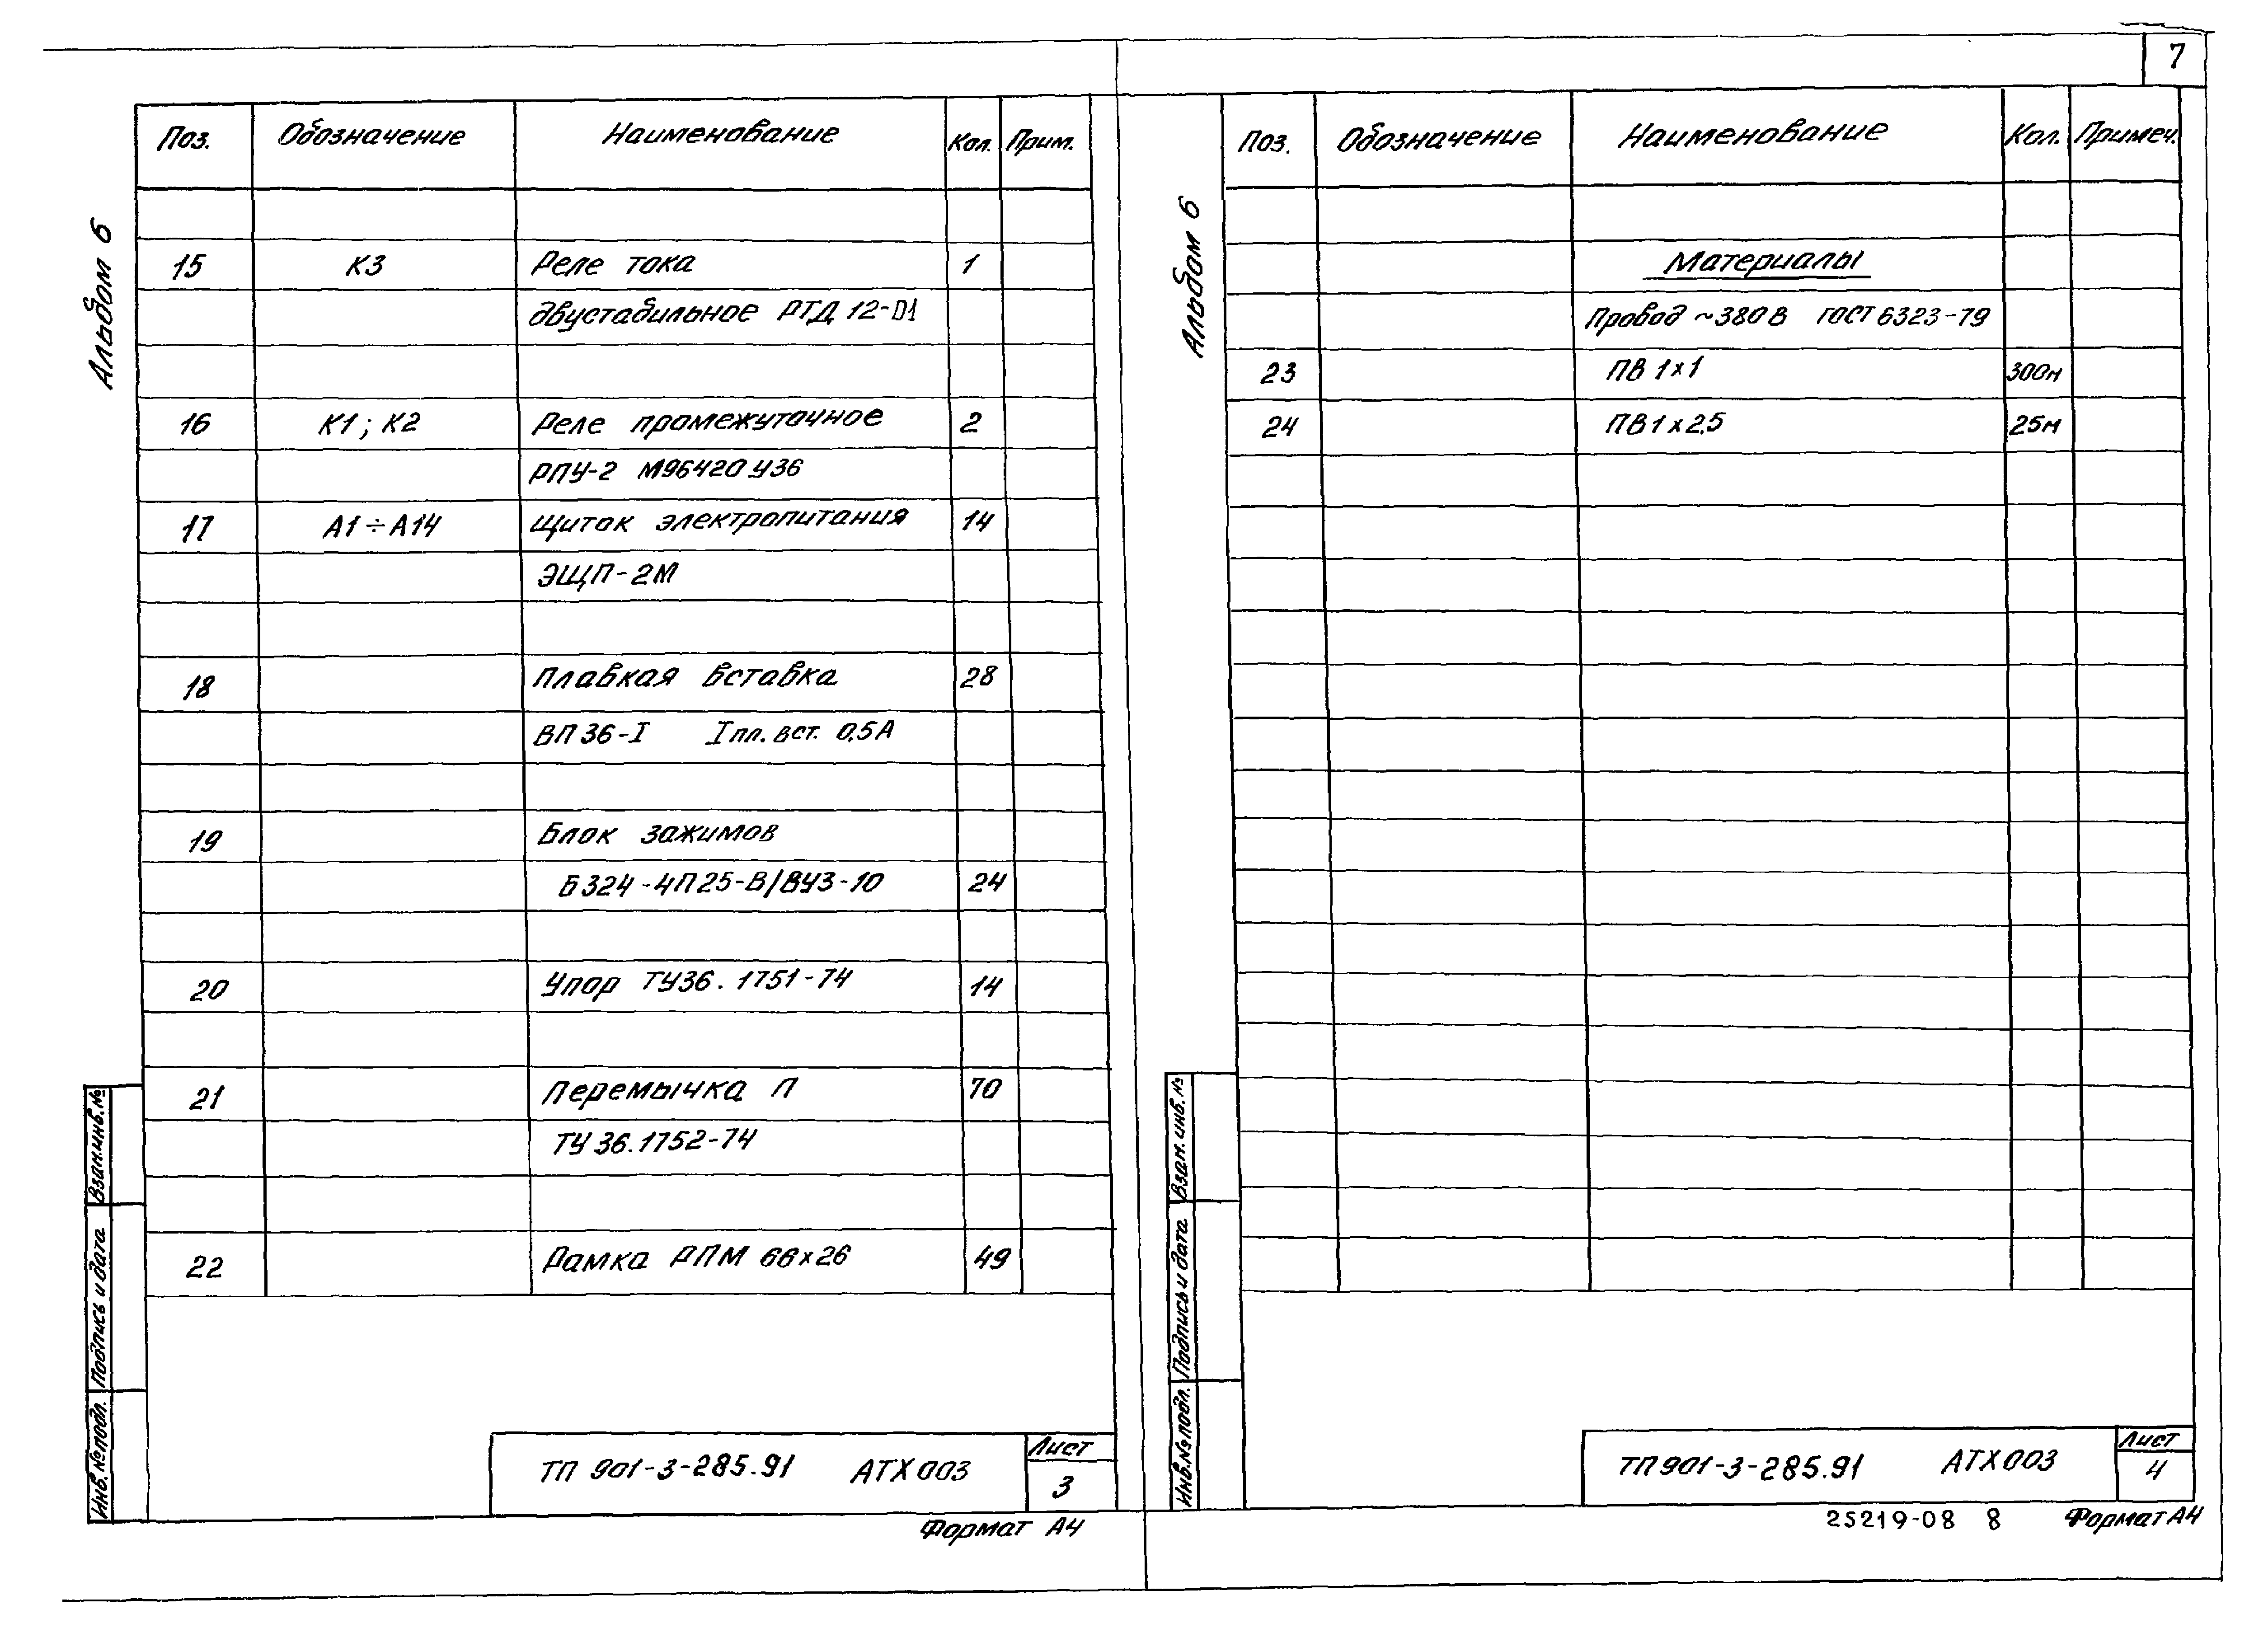 7
Альбом 6
Поз. Обозначение Наименование Кол. Прим.
15 К3 Реле тока 1
двустабильное РТД 12-01
16 К1; К2 Реле промежуточное 2
РПУ-2 М96420У36
17 А1÷А14 Щиток электропитания 14
ЭЩП-2М
18 Плавкая вставка 28
ВП36-I Iпл. вст. 0,5А
19 Блок зажимов
Б324-4П25-В/ВУ3-10 24
20 Упор ТУ36.1751-74 14
21 Перемычка П 70
ТУ36.1752-74
22 Рамка РПМ 66х26 49
Взам.инв.№
Подпись и дата
Инв.№подл.
ТП 901-3-285.91 АТХ003
Лист
3
Формат А4
Альбом 6
Поз. Обозначение Наименование Кол. Примеч.
Материалы
Провод ~380В ГОСТ6323-79
23 ПВ 1х1 300м
24 ПВ1х2,5 25м
Взам.инв.№
Подпись и дата
Инв.№подл.
ТП901-3-285.91 АТХ003
Лист
4
25219-08 8 Формат А4